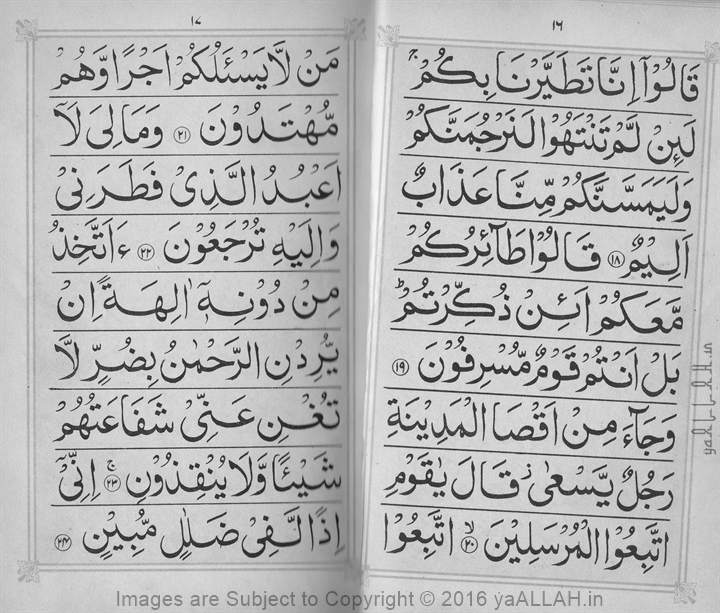 ١٦
قَالُوْۤا اِنَّا تَطَيَّرْنَا بِكُمْ ۚ
لَئِنْ لَّمْ تَنْتَهُوْا لَنَرْجُمَنَّكُمْ
وَلَيَمَسَّنَّكُمْ مِّنَّا عَذَابٌ
اَلِيْمٌ ﴿١٨﴾ قَالُوْا طَآئِرُكُمْ
مَّعَكُمْ اَئِنْ ذُكِّرْتُمْ ؕ
بَلْ اَنْتُمْ قَوْمٌ مُّسْرِفُوْنَ ﴿١٩﴾
وَجَآءَ مِنْ اَقْصَا الْمَدِيْنَةِ
رَجُلٌ يَّسْعٰى ز قَالَ يٰقَوْمِ
اتَّبِعُوا الْمُرْسَلِيْنَ ﴿٢٠﴾ ۙ اتَّبِعُوْا
١٧
مَنْ لَّا يَسْئَلُكُمْ اَجْرًا وَّهُمْ
مُّهْتَدُوْنَ ﴿٢١﴾ وَمَا لِيَ لَاۤ
اَعْبُدُ الَّذِيْ فَطَرَنِيْ
وَاِلَيْهِ تُرْجَعُوْنَ ﴿٢٢﴾ ءَاَتَّخِذُ
مِنْ دُوْنِهٖۤ اٰلِهَةً اِنْ
يُّرِدْنِ الرَّحْمٰنُ بِضُرٍّ لَّا
تُغْنِ عَنِّيْ شَفَاعَتُهُمْ
شَيْئًا وَّلَا يُنْقِذُوْنِ ﴿٢٣﴾ ۚ اِنِّيْۤ
اِذًا لَّفِيْ ضَلٰلٍ مُّبِيْنٍ ﴿٢٤﴾
yaALLAH.in
Images are Subject to Copyright © 2016 yaALLAH.in